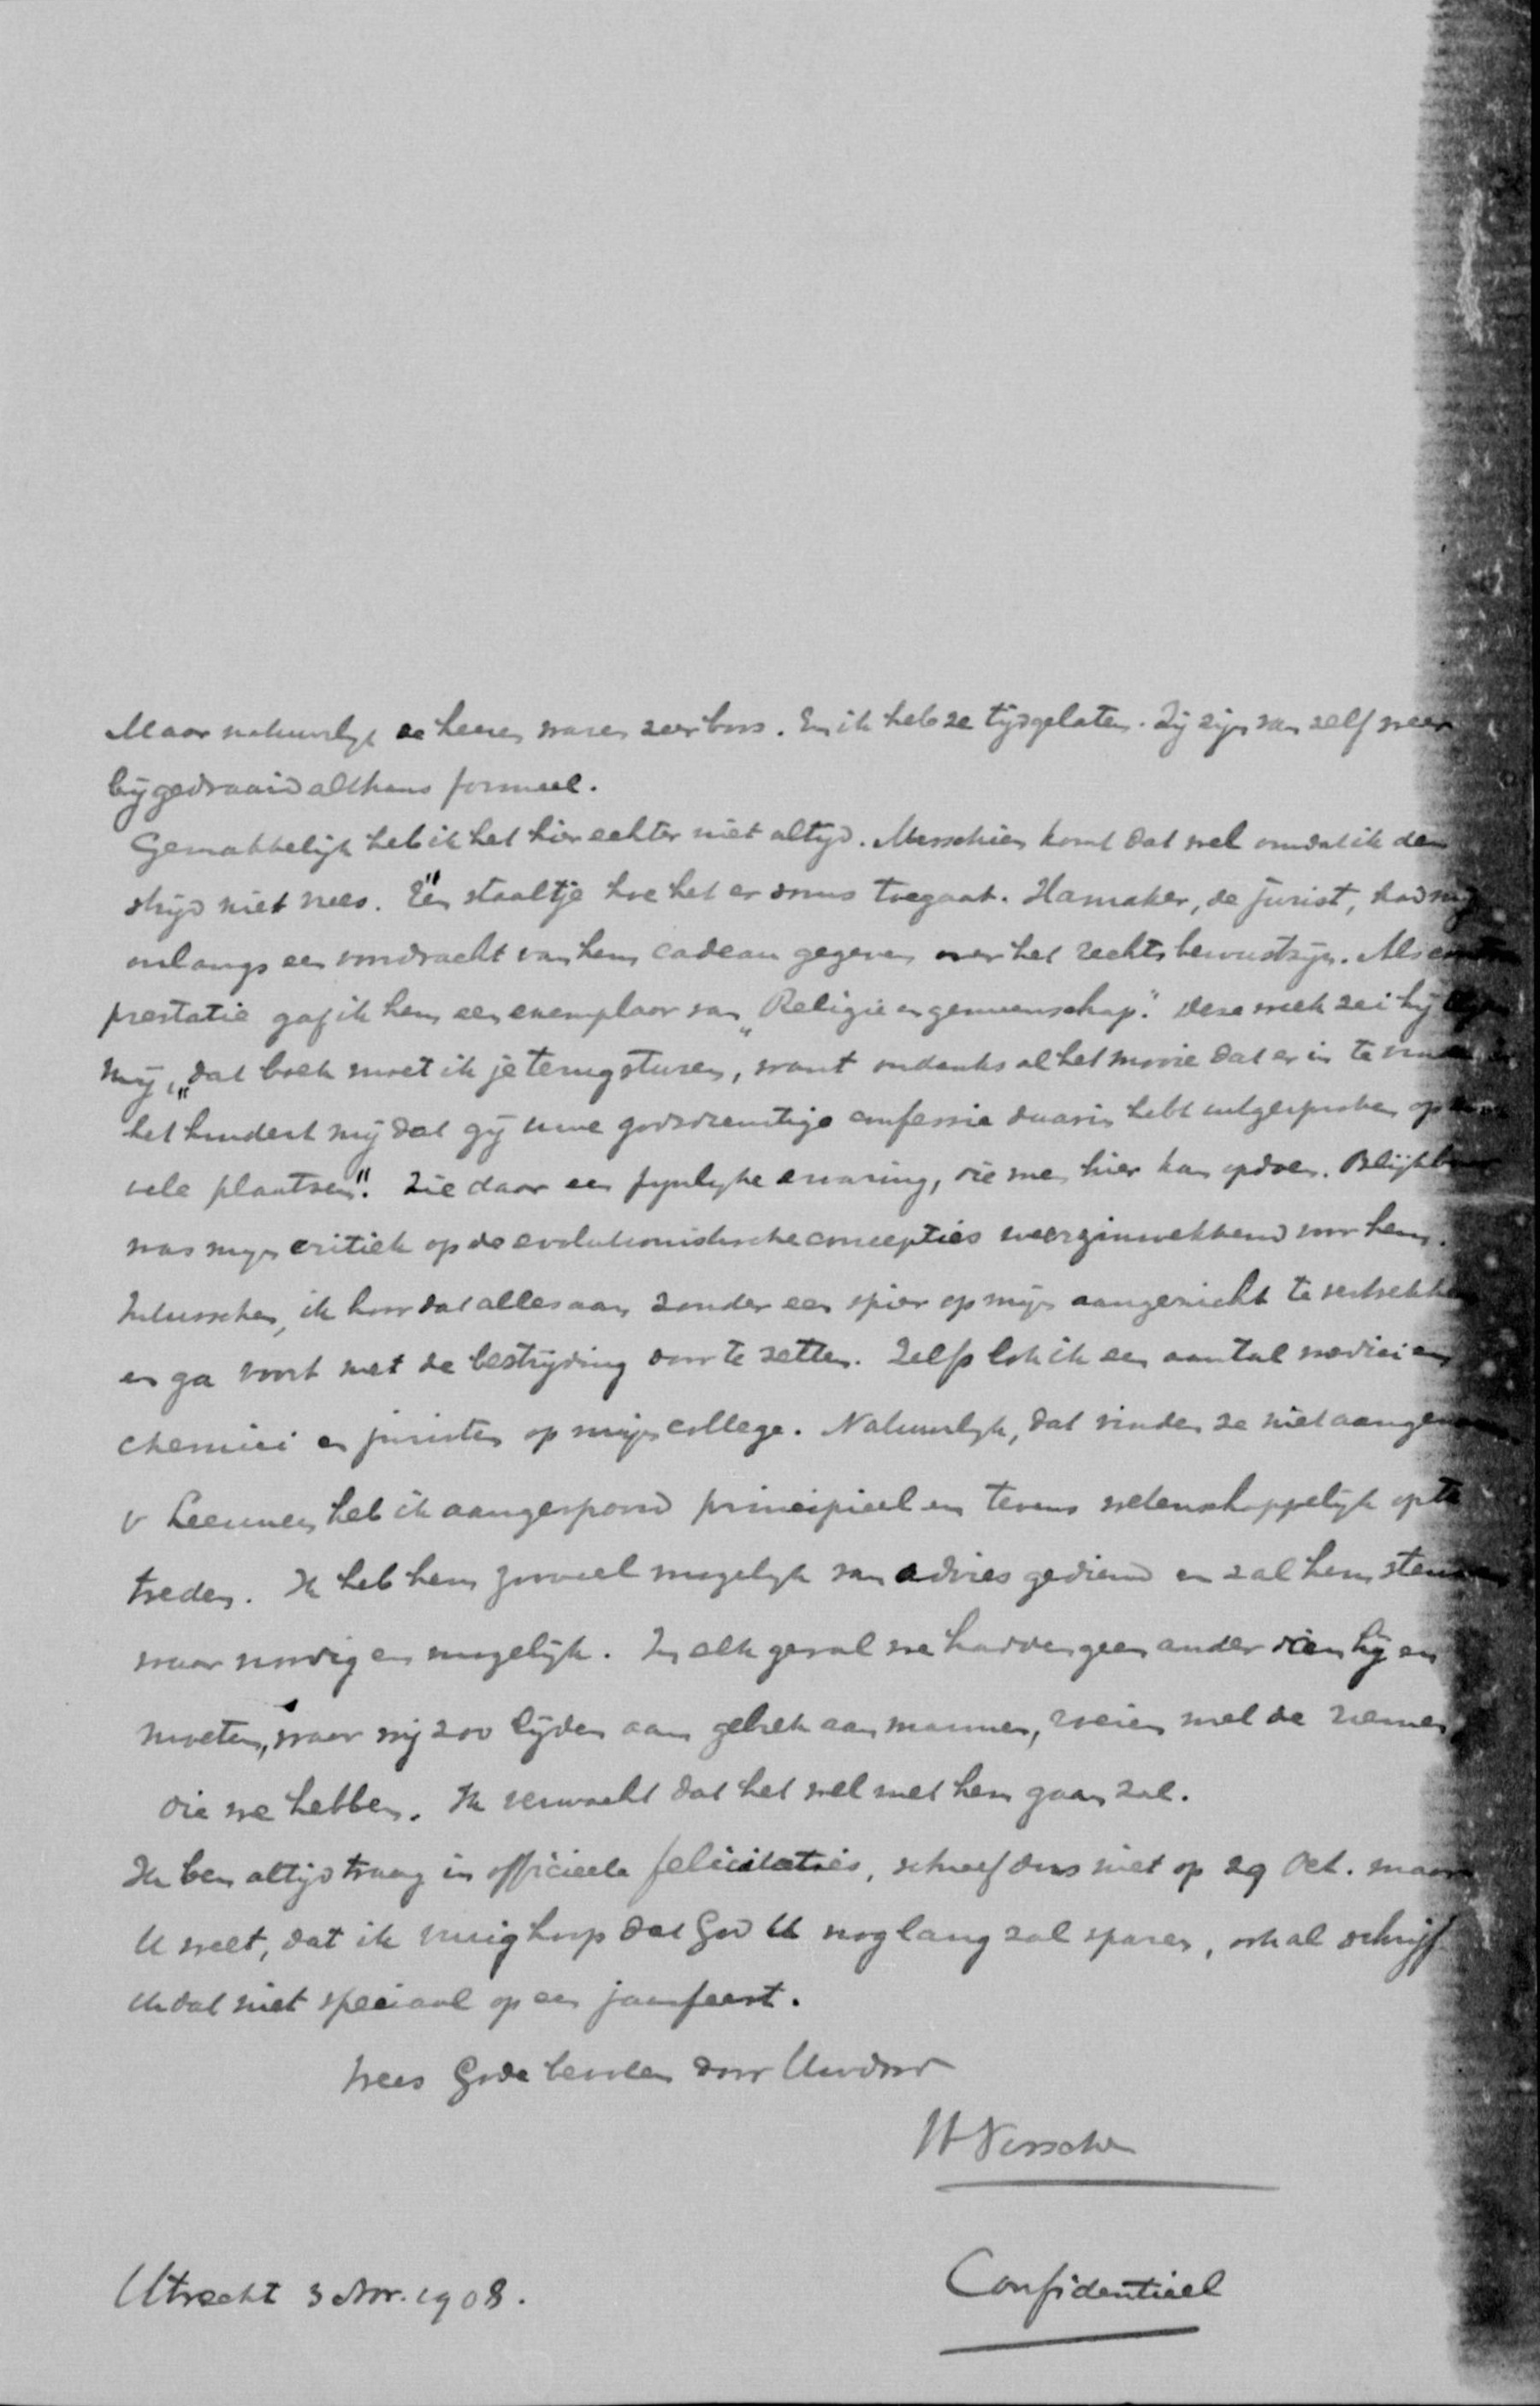 Maar natuurlijk de heeren waren zeer boos. En ik heb ze tijd gelaten. Zij zijn van zelf weer
bijgedraaid althans formeel.
Gemakkelijk heb ik het hier echter niet altijd. Misschien komt dat wel omdat ik den
strijd niet vrees. Eén staaltje hoe het er soms toegaat. Hamaker, de jurist, had mij
onlangs een voordracht van hem cadeau gegeven over het rechtsbewustzijn. Als contra
prestatie gaf ik hem een exemplaar van „Religie en gemeenschap." Deze week zei hij tegen
mij, „dat boek moet ik je terugsturen, want ondanks al het mooie dat er in te vinden is
het hindert mij dat gij uwe godsdienstige confessie daarin hebt uitgesproken op
vele plaatsen". Zie daar een pijnlijke ervaring, die men hier kan opdoen. Blijkbaar
was mijn critiek op de evolutionistische concepties weerzinwekkend voor hem.
Intusschen, ik hoor dat alles aan zonder een spier op mijn aangezicht te vertrekken
en ga voort met de bestrijding door te zetten. Zelfs lok ik een aantal medici en
chemici en juristen op mijn college. Natuurlijk, dat vinden ze niet aangenaam.
v Leeuwen heb ik aangespoord principieel en tevens wetenschappelijk op te
treden. Ik heb hem zooveel mogelijk van advies gediend en zal hem steunen
waar noodig en mogelijk. In elk geval we hadden geen ander dien hij en
moeten, waar wij zoo lijden aan gebrek aan mannen, roeien met de riemen
die we hebben. Ik verwacht dat het wel met hem gaan zal.
Ik ben altijd traag in officieele felicitaties, schreef dus niet op 29 Oct. maar
U weet, dat ik innig hoop dat God U nog lang zal sparen, ook al schrijf
ik dat niet speciaal op een jaarfeest.
Wees Gode bevolen door Uwdnr
H Visscher
Utrecht 3 Nov. 1908.
Confidentieel